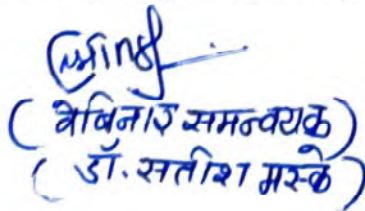 ( वेबिनार समन्वयक )
( डॉ. सतीश मस्के )